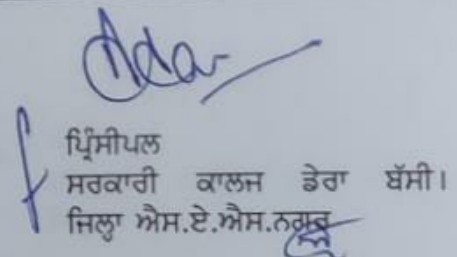 ਪ੍ਰਿੰਸੀਪਲ
ਸਰਕਾਰੀ ਕਾਲਜ ਡੇਰਾ ਬੱਸੀ।
ਜਿਲ੍ਹਾ ਐਸ.ਏ.ਐਸ.ਨਗਰ